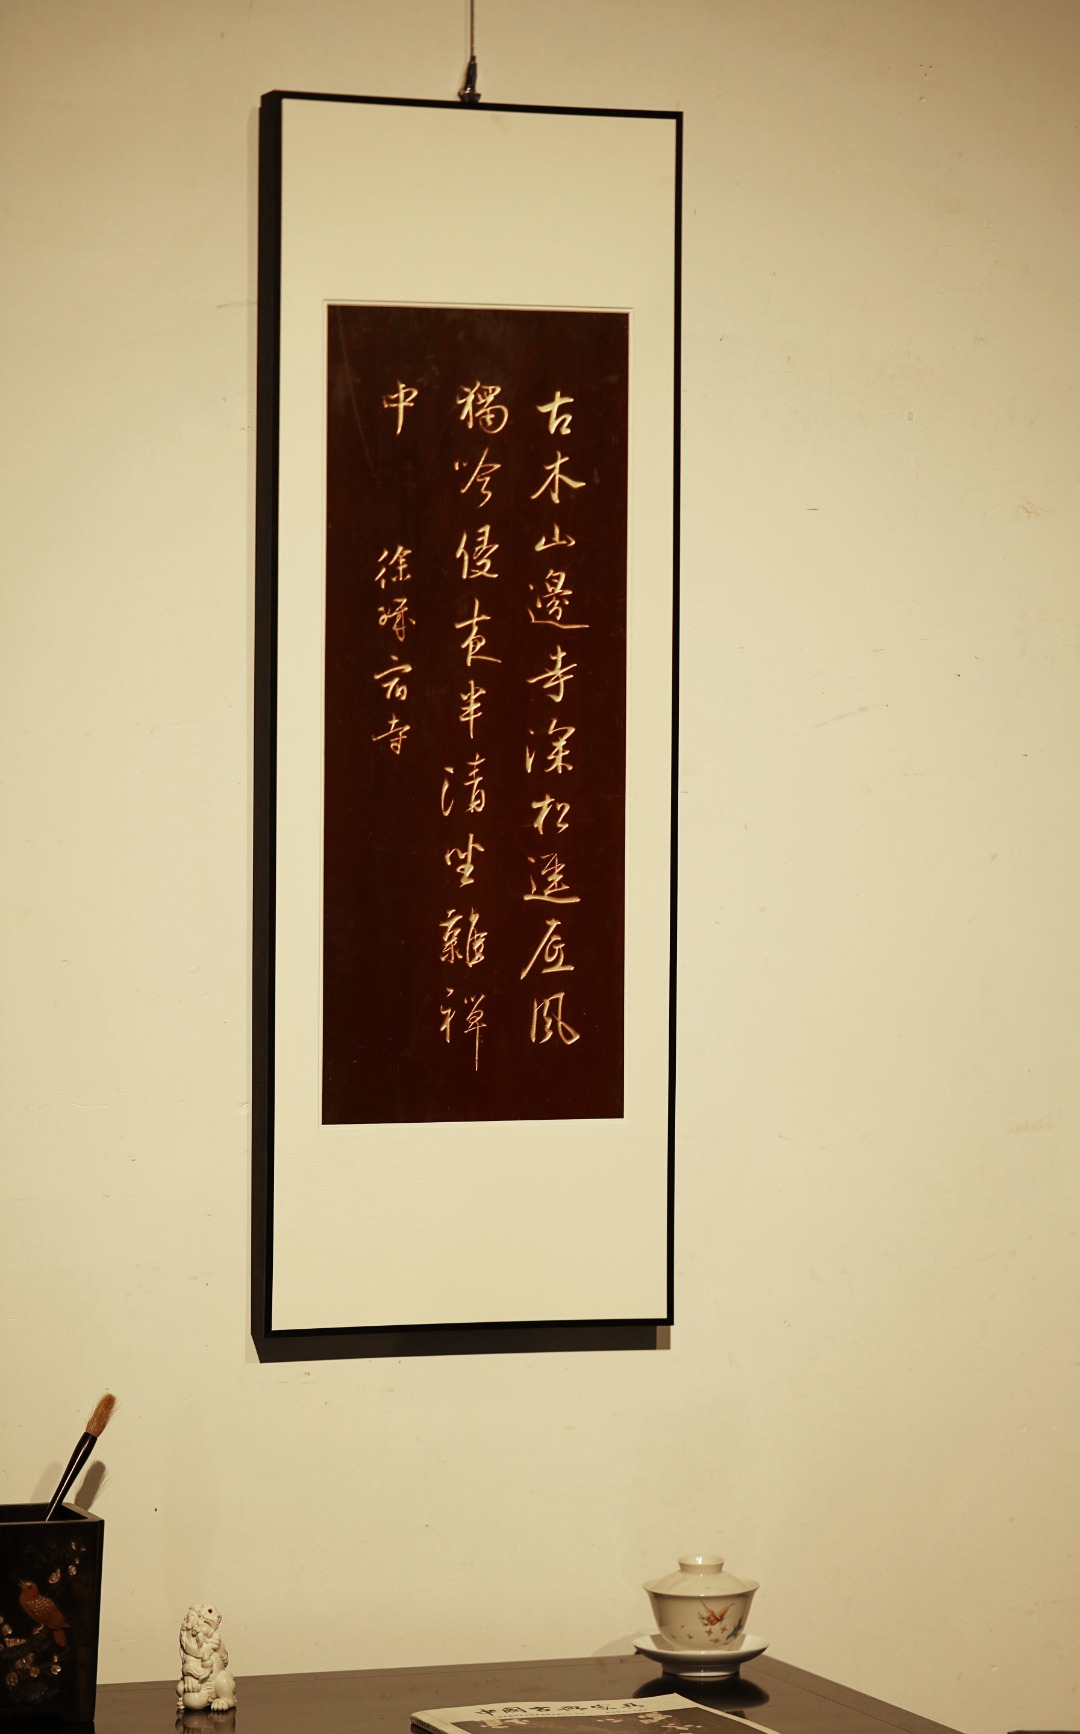 古木山邊寺深松逕底風
獨吟侵夜半清坐雜禪
中
徐璣宿寺
中國古典家具